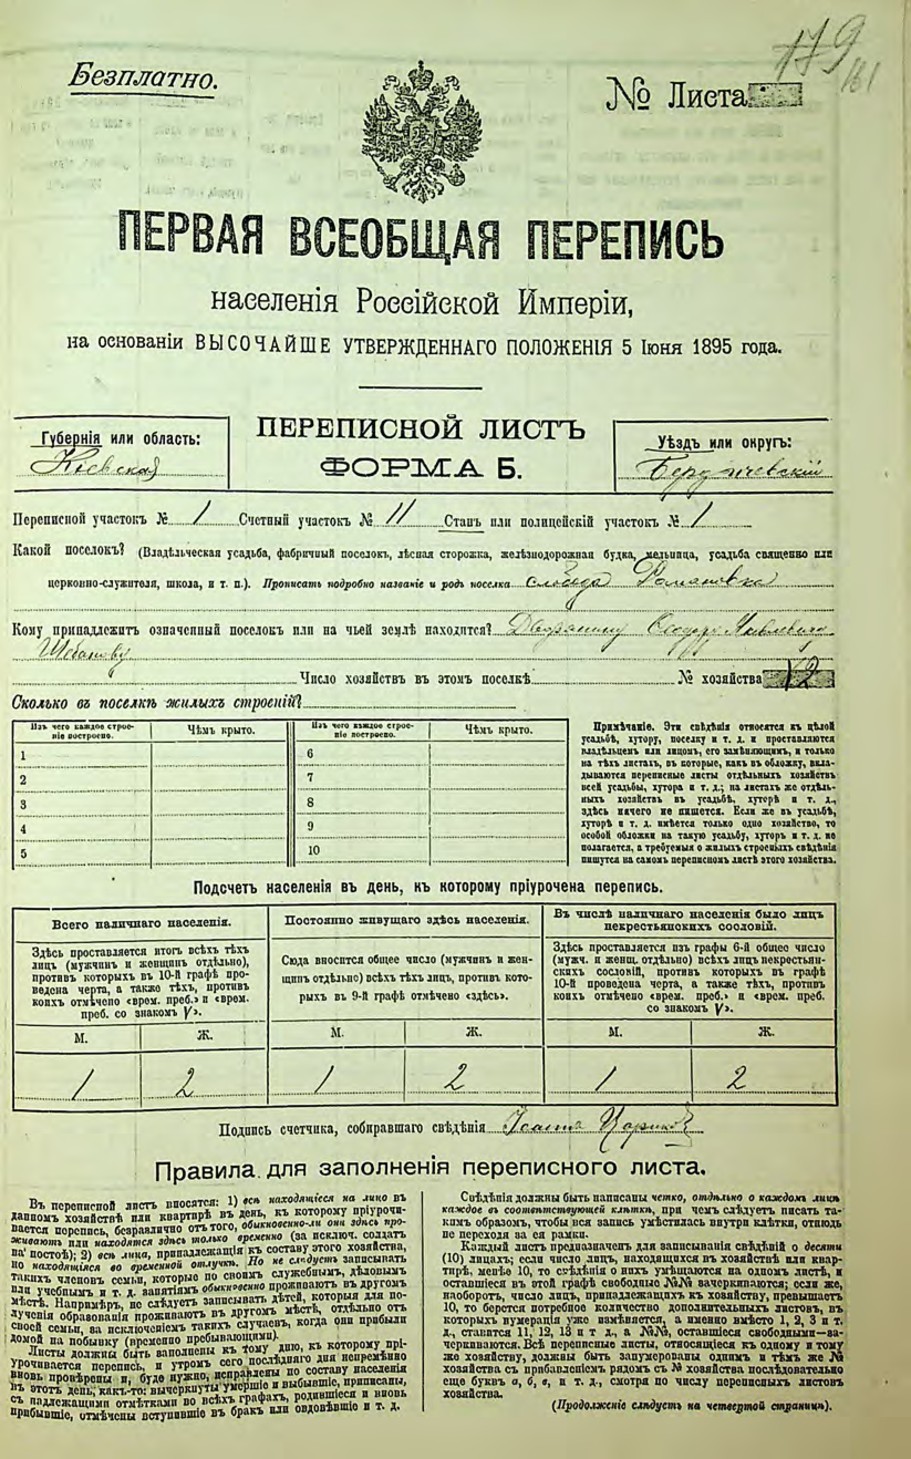 179
161
Безплатно.
№ Листа
ПЕРВАЯ ВСЕОБЩАЯ ПЕРЕПИСЬ
населенія Россійской Имперіи,
на основаніи ВЫСОЧАЙШЕ УТВЕРЖДЕННАГО ПОЛОЖЕНІЯ 5 Іюня 1895 года.
Губернія или область:
Кіевская
ПЕРЕПИСНОЙ ЛИСТЪ
ФОРМА Б.
Уѣздъ или округъ:
Бердичевскій
Переписной участокъ № 1 Счетный участокъ № 11 Станъ или полицейскій участокъ № 1
Какой поселокъ? (Владѣльческая усадьба, фабричный поселокъ, лѣсная сторожка, желѣзнодорожная будка, мельница, усадьба священно или
церковно-служителя, школа, и т. п.). Прописать подробно названіе и родъ поселка слобода Романовка
Кому принадлежитъ означенный поселокъ или на чьей землѣ находится? Дворянину
Число хозяйствъ въ этомъ поселкѣ № хозяйства 12
Сколько въ поселкѣ жилыхъ строеній?
Изъ чего каждое строе-
ніе построено.
Чѣмъ крыто.
Изъ чего каждое строе-
ніе построено.
Чѣмъ крыто.
1
2
3
4
5
6
7
8
9
10
Примѣчаніе. Эти свѣдѣнія относятся къ цѣлой
усадьбѣ, хутору, поселку и т. д. и проставляются
владѣльцемъ или лицомъ, его замѣняющимъ, и только
на тѣхъ листахъ, въ которые, какъ въ обложку, вкла-
дываются переписные листы отдѣльныхъ хозяйствъ
всей усадьбы, хутора и т. д.; на листахъ же отдѣль-
ныхъ хозяйствъ въ усадьбѣ, хуторѣ и т. д.,
здѣсь ничего не пишется. Если же въ усадьбѣ,
хуторѣ и т. д. имѣется только одно хозяйство, то
особой обложки на такую усадьбу, хуторъ и т. д. не
полагается, а требуемыя о жилыхъ строеніяхъ свѣдѣнія
пишутся на самомъ переписномъ листѣ этого хозяйства.
Подсчетъ населенія въ день, къ которому пріурочена перепись.
Всего наличнаго населенія.
Здѣсь проставляется итогъ всѣхъ тѣхъ
лицъ (мужчинъ и женщинъ отдѣльно),
противъ которыхъ въ 10-й графѣ про-
ведена черта, а также тѣхъ, противъ
коихъ отмѣчено «врем. преб.» и «врем.
преб. со знакомъ V».
М.
Ж.
1
2
Постоянно живущаго здѣсь населенія.
Сюда вносится общее число (мужчинъ и жен-
щинъ отдѣльно) всѣхъ тѣхъ лицъ, противъ кото-
рыхъ въ 9-й графѣ отмѣчено «здѣсь».
М.
Ж.
1
2
Въ числѣ наличнаго населенія было лицъ
некрестьянскихъ сословій.
Здѣсь проставляется изъ графы 6-й общее число
(мужч. и женщ. отдѣльно) всѣхъ лицъ некрестьян-
скихъ сословій, противъ которыхъ въ графѣ
10-й проведена черта, а также тѣхъ, противъ
коихъ отмѣчено «врем. преб.» и «врем. преб.
со знакомъ V».
М.
Ж.
1
2
Подпись счетчика, собиравшаго свѣдѣнія
Правила для заполненія переписного листа.
Въ переписной листъ вносятся: 1) всѣ находящіеся на лицо въ
данномъ хозяйствѣ или квартирѣ въ день, къ которому пріурочи-
вается перепись, безразлично отъ того, обыкновенно-ли они здѣсь про-
живаютъ или находятся здѣсь только временно (за исключ. солдатъ
на постоѣ); 2) всѣ лица, принадлежащія къ составу этого хозяйства,
но находящіяся во временной отлучкѣ. Но не слѣдуетъ записывать
такихъ членовъ семьи, которые по своимъ служебнымъ, дѣловымъ
или учебнымъ и т. д. занятіямъ обыкновенно проживаютъ въ другомъ
мѣстѣ. Напримѣръ, не слѣдуетъ записывать дѣтей, которыя для по-
лученія образованія проживаютъ въ другомъ мѣстѣ, отдѣльно отъ
своей семьи, за исключеніемъ такихъ случаевъ, когда они прибыли
домой на побывку (временно пребывающими).
Листы должны быть заполнены къ тому дню, къ которому прі-
урочивается перепись, и утромъ сего послѣдняго дня непремѣнно
вновь провѣрены и, буде нужно, исправлены по составу населенія
въ этотъ день, какъ-то: вычеркнуты умершіе и выбывшіе, приписаны,
съ надлежащими отмѣтками во всѣхъ графахъ, родившіеся и вновь
прибывшіе, отмѣчены вступившіе въ бракъ или овдовѣвшіе и т. д.
Свѣдѣнія должны быть написаны четко, отдѣльно о каждомъ лицѣ
каждое въ соотвѣтствующей клѣткѣ, при чемъ слѣдуетъ писать та-
кимъ образомъ, чтобы вся запись умѣстилась внутри клѣтки, отнюдь
не переходя за ея рамки.
Каждый листъ предназначенъ для записыванія свѣдѣній о десяти
(10) лицахъ; если число лицъ, находящихся въ хозяйствѣ или квар-
тирѣ, менѣе 10, то свѣдѣнія о нихъ умѣщаются на одномъ листѣ, и
оставшіеся въ этой графѣ свободные №№ вачеркиваются; если же,
наоборотъ, число лицъ, принадлежащихъ къ хозяйству, превышаетъ
10, то берется потребное количество дополнительныхъ листовъ, въ
которыхъ нумерація уже измѣняется, а именно вмѣсто 1, 2, 3 и т.
д., ставится 11, 12, 13 и т д., а №№, оставшіеся свободными—за-
черкиваются. Всѣ переписные листы, относящіеся къ одному и тому
же хозяйству, должны быть занумерованы однимъ и тѣмъ же №
хозяйства съ прибавленіемъ рядомъ съ № хозяйства послѣдовательно
еще буквъ а, б, в, и т. д., смотря по числу переписныхъ листовъ
хозяйства.
(Продолженіе слѣдуетъ на четвертой страницѣ).